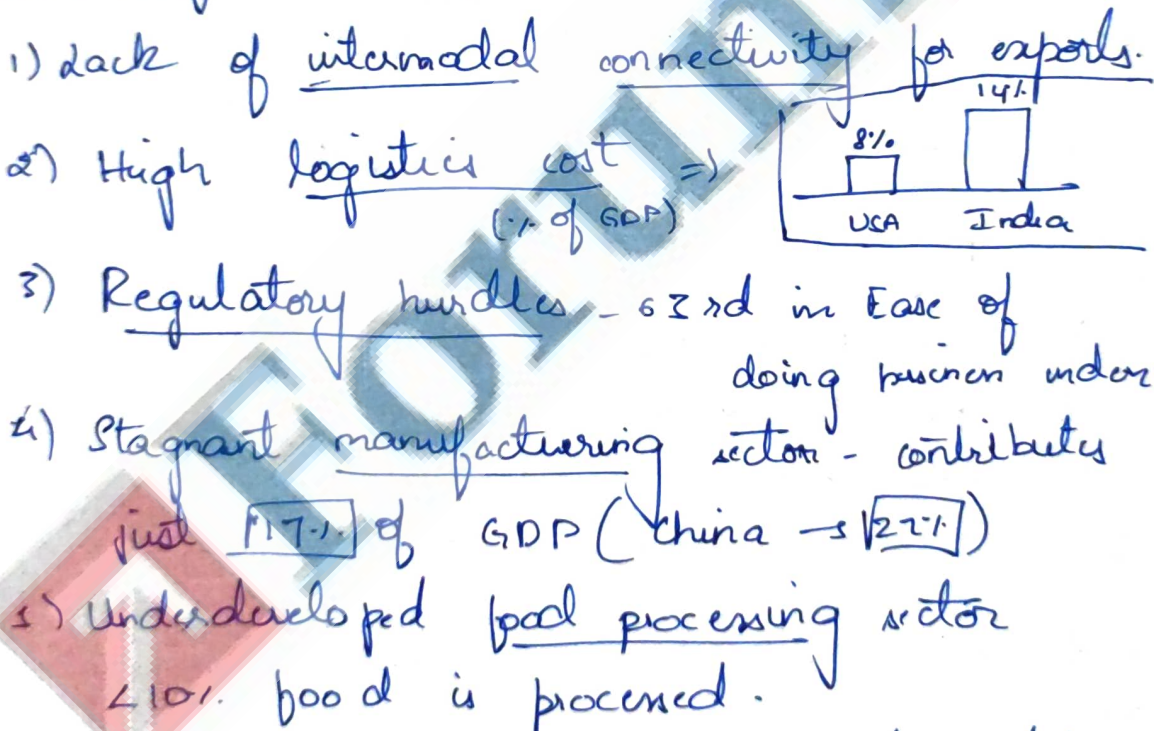 1) Lack of intermodal connectivity for exports.
2) High logistics cost =)
(% of GDP)
8% 14%
USA India
3) Regulatory hurdles - 63rd in Ease of
doing business index
4) Stagnant manufacturing sector - contributes
just 17% of GDP (China → 27%)
5) Underdeveloped food processing sector
<10% food is processed.
Forum